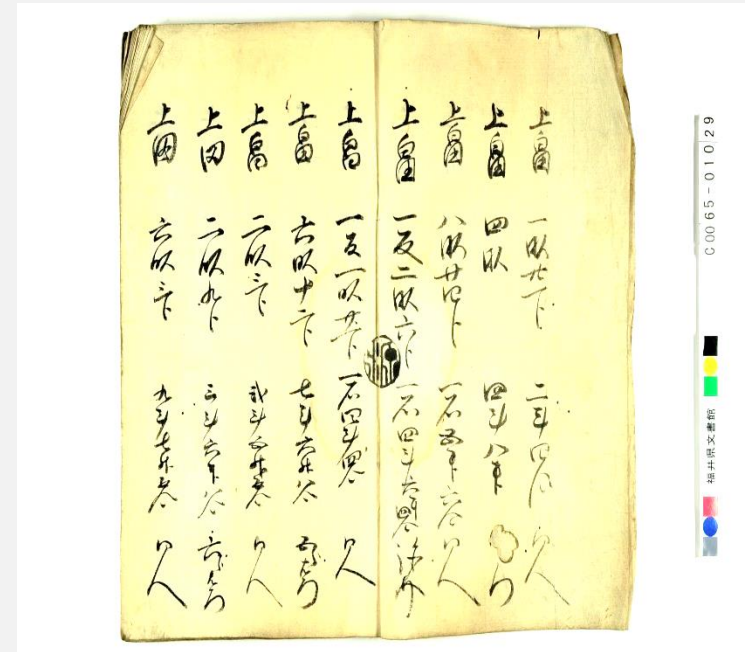 上畠 一畝廿一卜 二斗四合 同人
上畠 四畝 四斗八升
上畠 八畝廿四卜 一石五升六合 同人
上畠 一反二畝六卜 一石四斗六升四合
上畠 一反一畝廿一卜 一石四斗四合 同人
上畠 六畝十二卜 七斗六升八合
上畠 二畝三卜 弐斗五升弐合 同人
上田 二畝九卜 三斗六升八合
上田 六畝三卜 九斗七升六合 同人
C0065-01029
福井県文書館